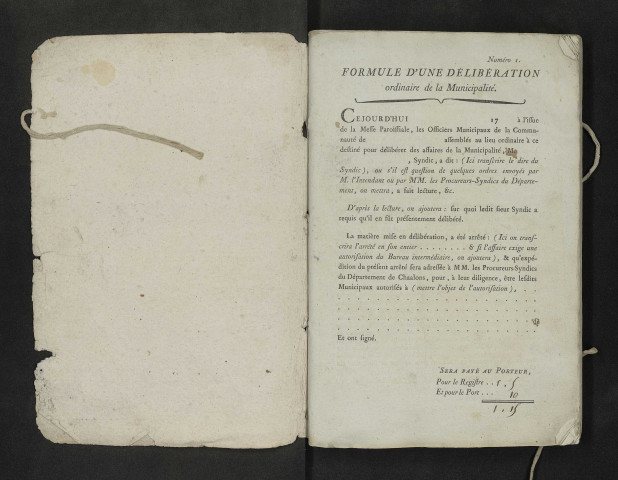 Numéro 1.
FORMULE D'UNE DÉLIBÉRATION
ordinaire de la Municipalité.
CEJOURD'HUI 17 à l'issue
de la Messe Paroissiale, les Officiers Municipaux de la Commu-
nauté de assemblés au lieu ordinaire à ce
destiné pour délibérer des affaires de la Municipalité,
, Syndic, a dit : (Ici transcrire le dire du
Syndic), ou s'il est question de quelques ordres envoyés par
M. l'Intendant ou par MM. les Procureurs-Syndics du Départe-
ment, on mettra, a fait lecture, &c.
D'après la lecture, on ajoutera : sur quoi ledit sieur Syndic a
requis qu'il en fût présentement délibéré.
La matière mise en délibération, a été arrêté : (Ici on trans-
crira l'arrêté en son entier . . . . . . . . & si l'affaire exige une
autorisation du Bureau intermédiaire, on ajoutera), & qu'expé-
dition du présent arrêté sera adressée à MM. les Procureurs-Syndics
du Département de Chaalons, pour, à leur diligence, être lesdits
Municipaux autorisés à (mettre l'objet de l'autorisation), . .
Et ont signé.
SERA PAYÉ AU PORTEUR,
Pour le Registre . . 1 , 5
Et pour le Port . . . 10
1 , 15